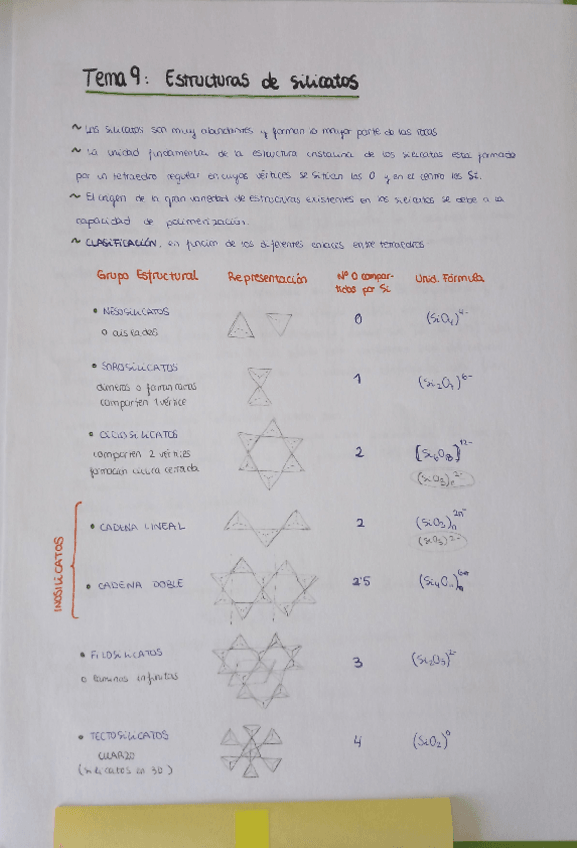 Tema 9: Estructuras de silicatos
~ Los silicatos son muy abundantes y forman la mayor parte de las rocas
~ La unidad fundamental de la estructura cristalina de los silicatos esta formada
por un tetraedro regular en cuyos vértices se sitúan los O y en el centro los Si.
~ El origen de la gran variedad de estructuras existentes en los silicatos se debe a la
capacidad de polimerización.
~ CLASIFICACIÓN, en función de los diferentes enlaces entre tetraedros
Grupo Estructural Representación Nº O compar- Unid. Fórmula
tidos por Si
• NESOSILICATOS
o aislados 0 (SiO₄)⁴⁻
• SOROSILICATOS
dímeros o
comparten 1 vértice 1 (Si₂O₇)⁶⁻
• CICLOSILICATOS
comparten 2 vértices 2 [Si₆O₁₈]¹²⁻
formación cerrada (SiO₃)ₙ²⁻
INOSILICATOS
• CADENA LINEAL 2 (SiO₃)ₙ²ⁿ⁻
(SiO₃)²⁻
• CADENA DOBLE 2'5
• FILOSILICATOS
o láminas infinitas 3 (Si₂O₅)²⁻
• TECTOSILICATOS
CUARZO 4 (SiO₂)⁰
(silicatos en 3D)